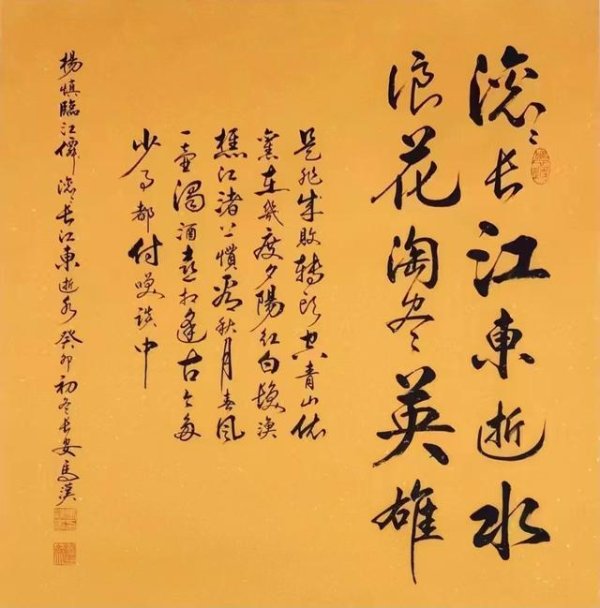 滚〻长江東逝水
浪花淘尽英雄
是非成敗转头空青山依
舊在幾度夕陽红白髮渔
樵江渚上慣看秋月春风
一壶濁酒喜相逢古今多
少事都付笑谈中
楊慎臨江僊滚〻长江東逝水癸卯初冬长安馬漢